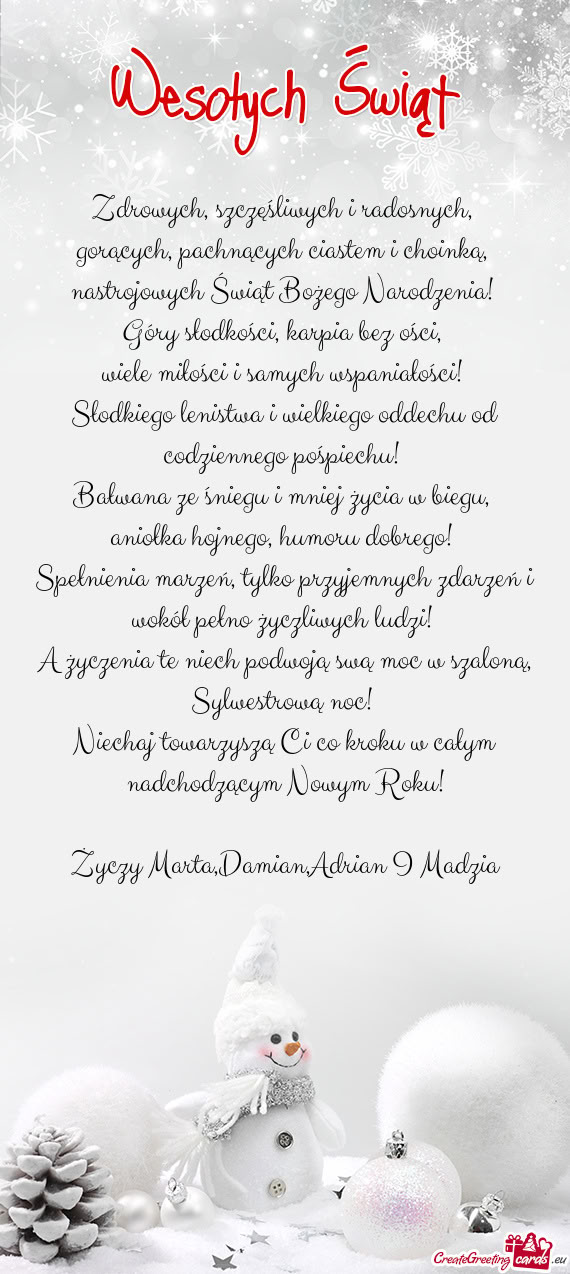 Wesołych Świąt
Zdrowych, szczęśliwych i radosnych,
gorących, pachnących ciastem i choinką,
nastrojowych Świąt Bożego Narodzenia!
Góry słodkości, karpia bez ości,
wiele miłości i samych wspaniałości!
Słodkiego lenistwa i wielkiego oddechu od
codziennego pośpiechu!
Bałwana ze śniegu i mniej życia w biegu,
aniołka hojnego, humoru dobrego!
Spełnienia marzeń, tylko przyjemnych zdarzeń i
wokół pełno życzliwych ludzi!
A życzenia te niech podwoją swą moc w szaloną,
Sylwestrową noc!
Niechaj towarzyszą Ci co kroku w całym
nadchodzącym Nowym Roku!
Życzy Marta,Damian,Adrian I Madzia
CreateGreetingcards.eu